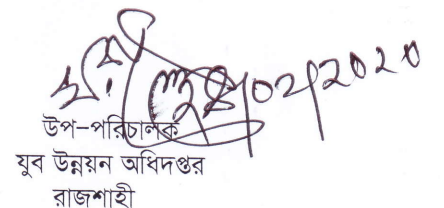 উপ-পরিচালক
যুব উন্নয়ন অধিদপ্তর
রাজশাহী